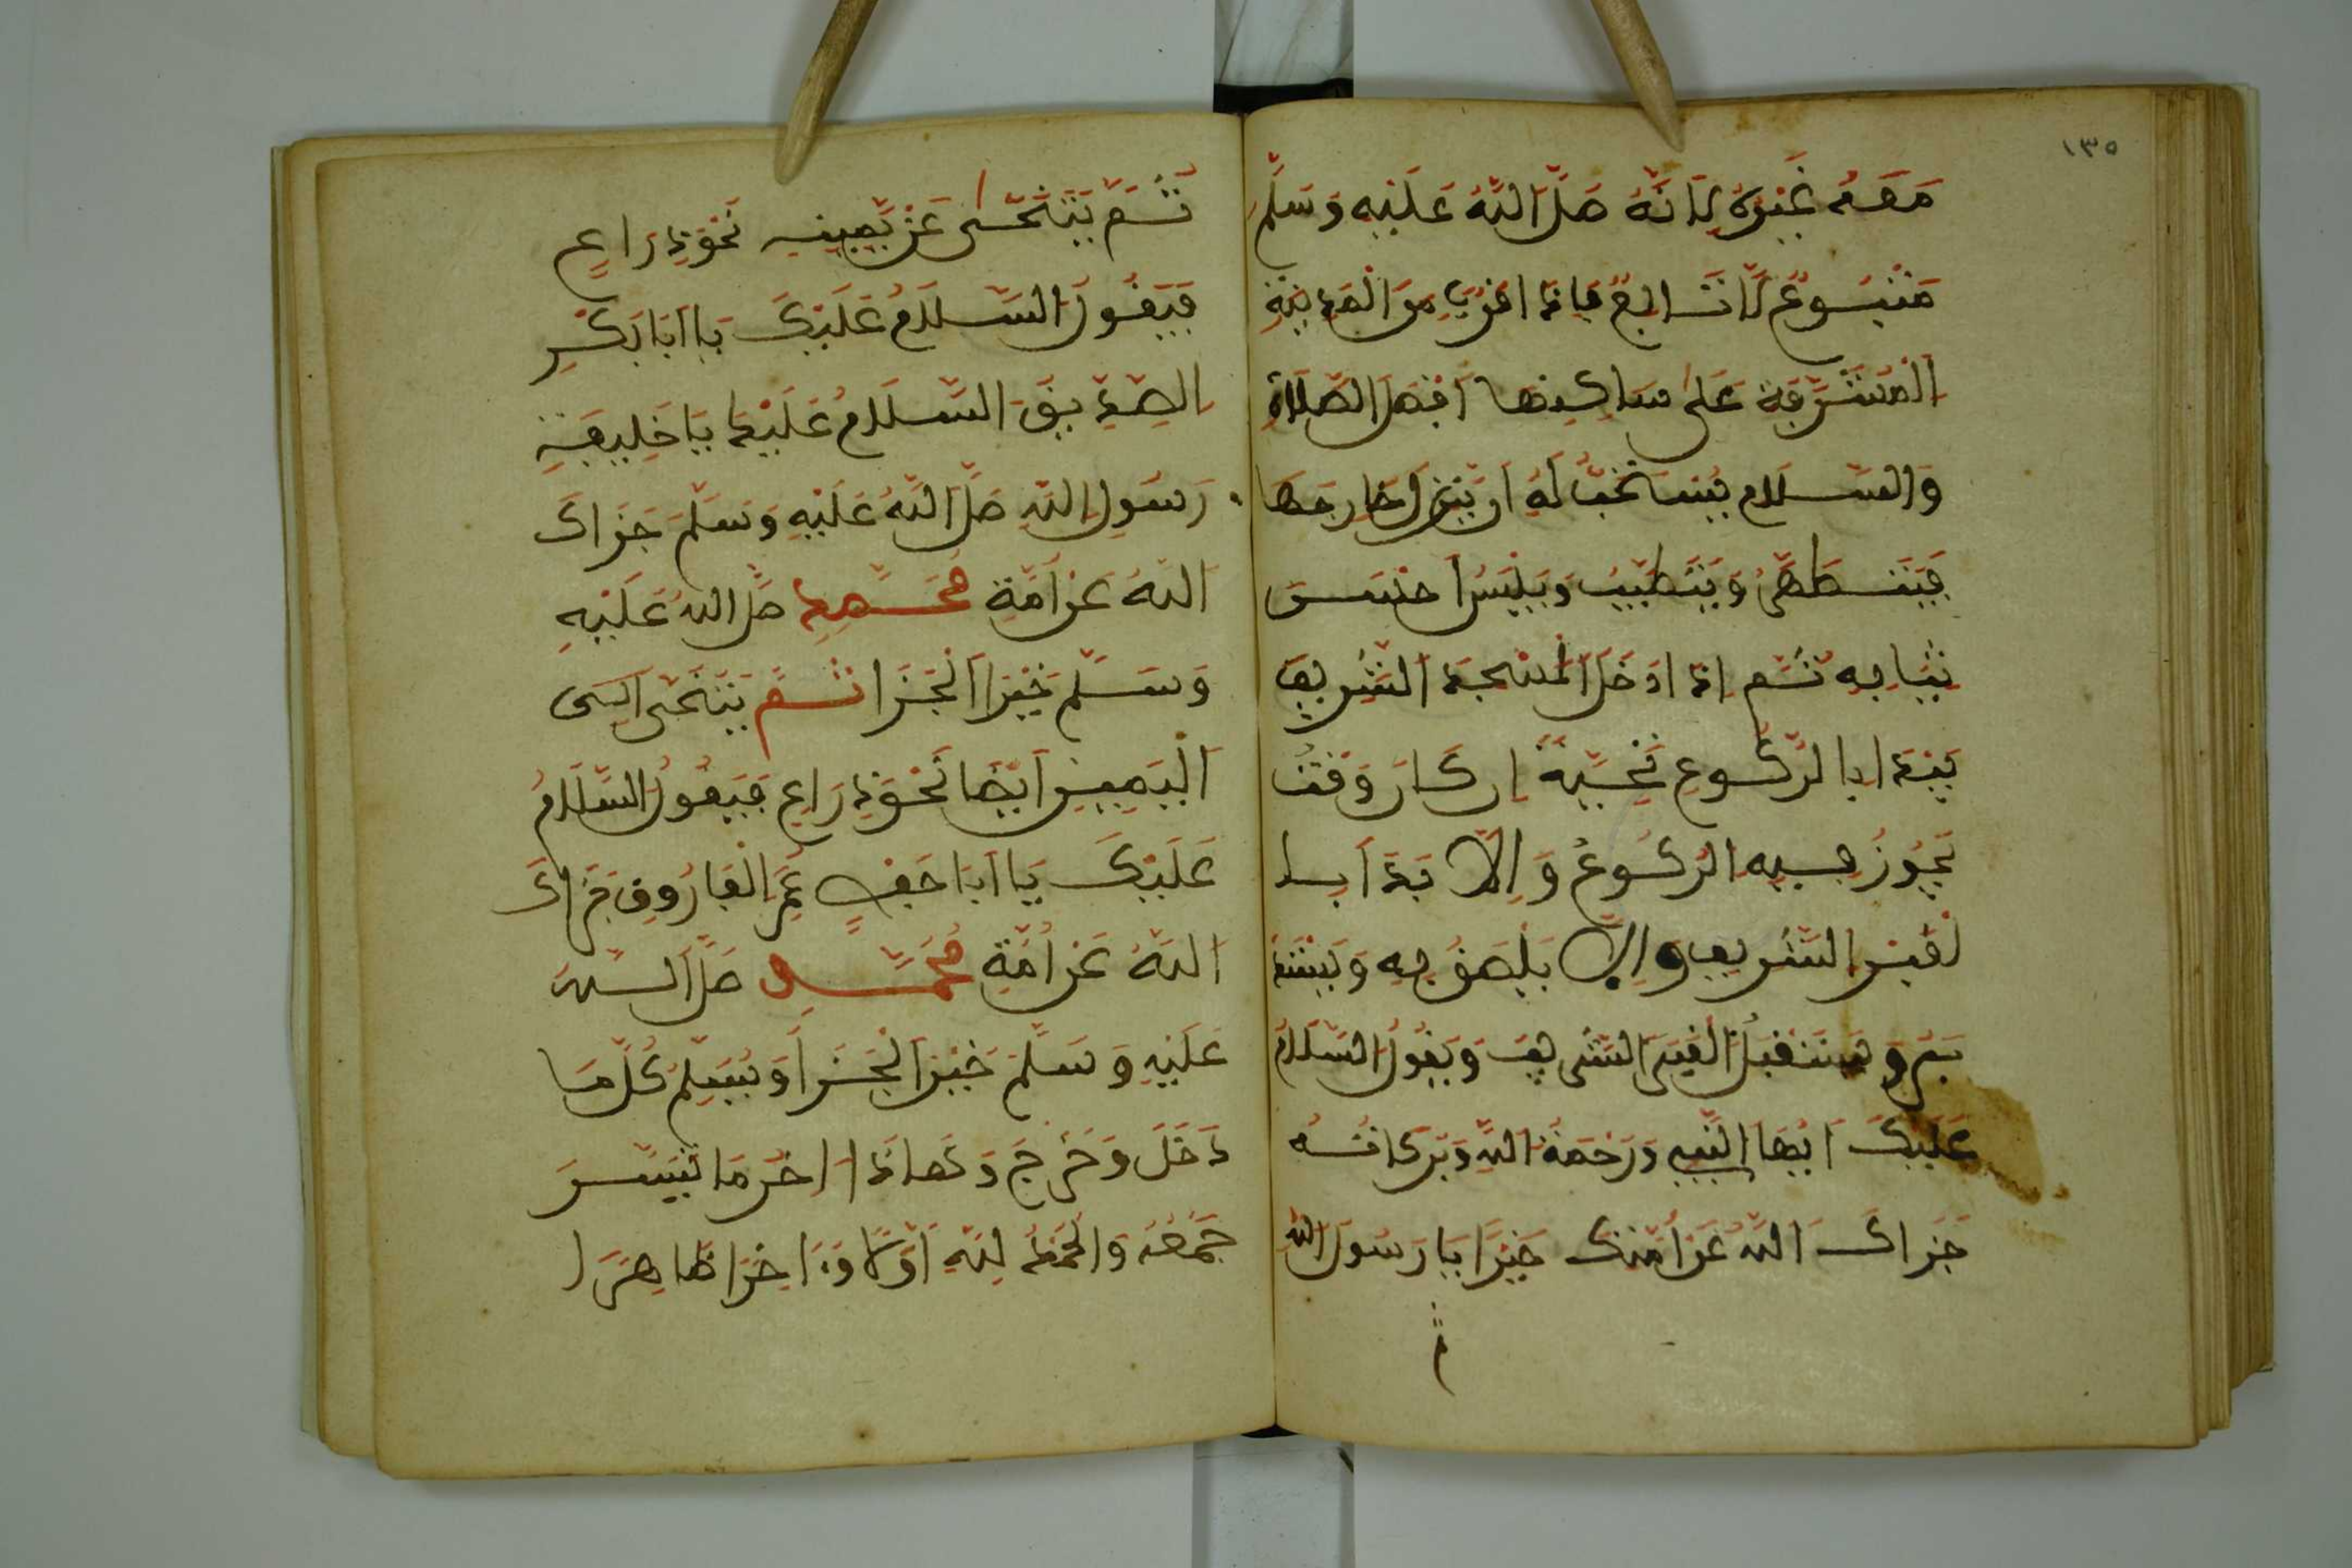 ١٣٥
مَعَهُ غَيْرَهُ لِأَنَّهُ صَلَّى اللَّهُ عَلَيْهِ وَسَلَّمَ
مَتْبُوعٌ لَا تَابِعٌ فإذا اقرب من المدينةِ
المُشَرَّفَةِ عَلَى ساكِنِها أَفْضَلُ الصَّلَاةِ
وَالسَّلَام يُسْتَحَبُّ لَهُ ان يَنْزِلَ خارجها
فَيَتَطَهَّرُ وَيَتَطَيَّبُ وَيَلْبَسُ احْسَن
ثِيَابِهِ ثُمَّ اذا ادخَلَ الْمَسْجِدَ الشَّرِيف
يَبْدَا بِالرُّكُوعِ تَحِيَّةً إن كان وَقْتٌ
يَجُوزُ فيه الرُّكُوعُ وَإِلَّا بَدَأ بـا
لْقَبْرِ الشَّرِيف وَلَا يَلْصَقُ بِهِ وَيَسْتَد
بر و يستقبل القبر الشريف وَيَقُولُ السَّلَامُ
عَلَيْكَ أَيُّهَا النَّبِي وَرَحْمَةُ اللَّهِ وَبَرَكَاتُه
جَزَاكَ اللَّهُ عَنْ أُمَّتِكَ خَيْرًا يَا رَسُولَ اللَّهِ
ثُمَّ يَتَنَحَّى عَنْ يَمِينِهِ نَحْوَ ذِرَاعٍ
فَيَقُولُ السَّلَامُ عَلَيْكَ يَا أَبَا بَكْرٍ
الصِّدِّيقَ السَّلَامُ عَلَيْكَ يَا خَلِيفَةِ
رَسُولِ اللَّهِ صَلَّى اللَّهُ عَلَيْهِ وَسَلَّمَ جَزَاكَ
اللَّهُ عَنْ أُمَّةِ مُحَمَّدٍ صَلَّى اللَّهُ عَلَيْهِ
وَسَلَّمَ خَيْرَ الْجَزَا ثُمَّ يَتَنَحَّى إِلَى
الْيَمِينِ أَيْضًا نَحْوَ ذِرَاعٍ فَيَقُولُ السَّلَامُ
عَلَيْكَ يَا أَبَا حَفْصٍ عُمَرَ الْفَارُوقِ جَزَاكَ
اللَّهُ عَنْ أُمَّةِ مُحَمَّدٍ صَلَّى اللَّهُ
عَلَيْهِ وَسَلَّمَ خَيْرَ الْجَزَا وَيُسَلِّمُ كُلَّمَا
دَخَلَ وَخَرَجَ وَهَاذَا اخر مَا تَيَسَّرَ
جَمْعُهُ وَالْحَمْدُ لِلَّهِ أَوَّلًا وَءَاخِرًا ظَاهِرًا